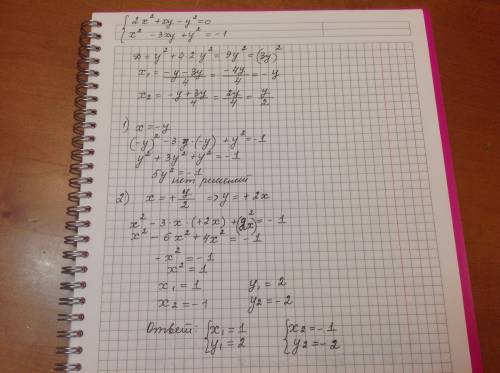 { 2x² + xy - y² = 0
x² - 3xy + y² = -1
D = y² + 4·2y² = 9y² = (3y)²
x₁ = (-y-3y)/4 = -4y/4 = -y
x₂ = (-y+3y)/4 = 2y/4 = y/2
1) x = -y
(-y)² - 3·y·(-y) + y² = -1
y² + 3y² + y² = -1
5y² = -1
нет решений
2) x = + y/2 => y = +2x
x² - 3·x·(+2x) + (2x)² = -1
x² - 6x² + 4x² = -1
-x² = -1
x² = 1
x₁ = 1 y₁ = 2
x₂ = -1 y₂ = -2
Ответ: { x₁ = 1 { x₂ = -1
y₁ = 2 y₂ = -2